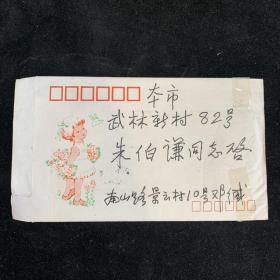 本市
武林新村82号
朱伯谦同志啓
南山路景云村10号邓缄